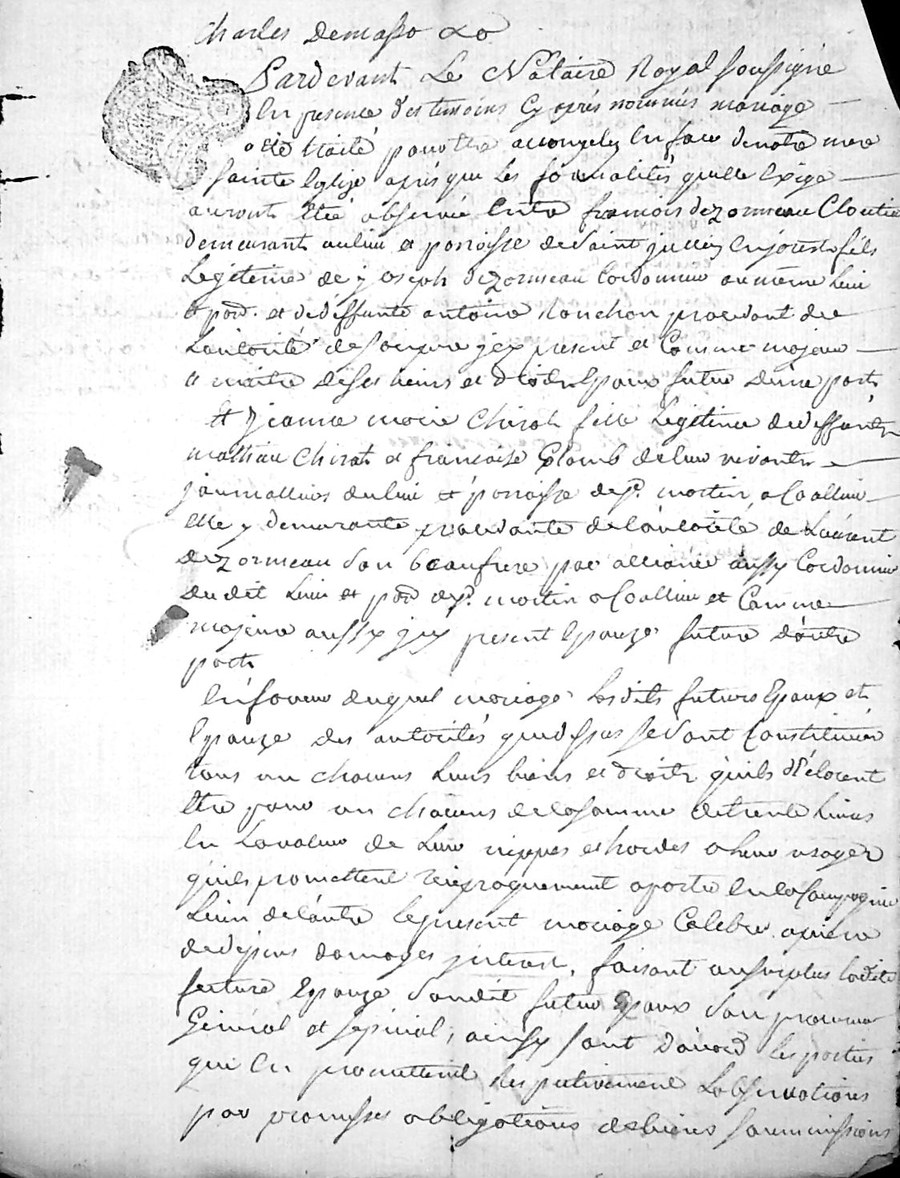 Charles Demasso &c
Pardevant Le Notaire Royal soussigné
En presence des temoins Cy après nommés mariage
a été traité pour être accomply En face de notre mere
sainte Eglize après que les formalités quelle Exige
auront été observée Entre françois dezormeau Cloutie
demeurant au lieu et paroisse de Saint jullien En jourest fils
Legitime de joseph dezormeau Cordonnier au même lieu
et par. et de deffunte antoine Ronchon procedant de
Lautorité de son pere jcy present et Comme majeur
et maitre de ses biens et droits Epoux futur d'une part
Et Jeanne marie Chirat fille Legitime de deffunts
mathieu Chirat et francoise Colomb de leur vivant
journalliers du lieu et paroisse de st. martin a Coallieu
Elle y demeurante procedante de L'autorité de Laurent
dezormeau son beaufrere par alliance aussy Cordonnier
du dit Lieu et par. de st. martin a Coallieu et Comme
majeure aussy jcy present Epouze future d'autre
part
En faveur duquel mariage Lesdits futurs Epoux et
Epouze des autorités que dessus se sont Constitués
tous un chacuns Leurs biens et droits quils déclarent
être pour un chacuns de la somme de trente Livres
En La valeur de Leur nippes et hardes a leur usages
quils promettent reciproquement aporter En la Compagnie
L'un de L'autre le present mariage Celebré a peine
de depens domages jnterest, faisant au surplus ladite
future Epouze dudit futur Epoux son procureur
Général et special, ainsy sont d'acord les parties
qui En promettent respectivement L'observations
par promesses obligations de biens soumissions